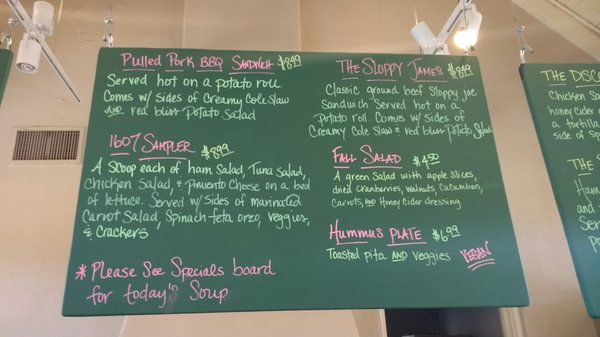 Pulled Pork BBQ Sandwich $8.49
Served hot on a potato roll
Comes w/ sides of Creamy Cole Slaw
AND red bliss Potato Salad
1607 Sampler $8.99
A scoop each of ham Salad, Tuna salad,
Chicken Salad, & Pimiento Cheese on a bed
of lettuce. Served w/ sides of marinated
Carrot Salad, Spinach-feta orzo, veggies,
& Crackers
* Please See Specials board
for today's Soup
The Sloppy James $8.49
Classic ground beef Sloppy joe
Sandwich Served hot on a
Potato roll. Comes w/ sides of
Creamy Cole Slaw & red bliss Potato Salad
Fall Salad $4.50
A green Salad with apple slices,
dried cranberries, walnuts, Cucumbers,
Carrots, AND Honey Cider dressing
Hummus Plate $6.99
Toasted pita AND veggies VEGAN
The Disco
Chicken Sala
honey cider d
a tortilla
side of Spi
The S
Hum